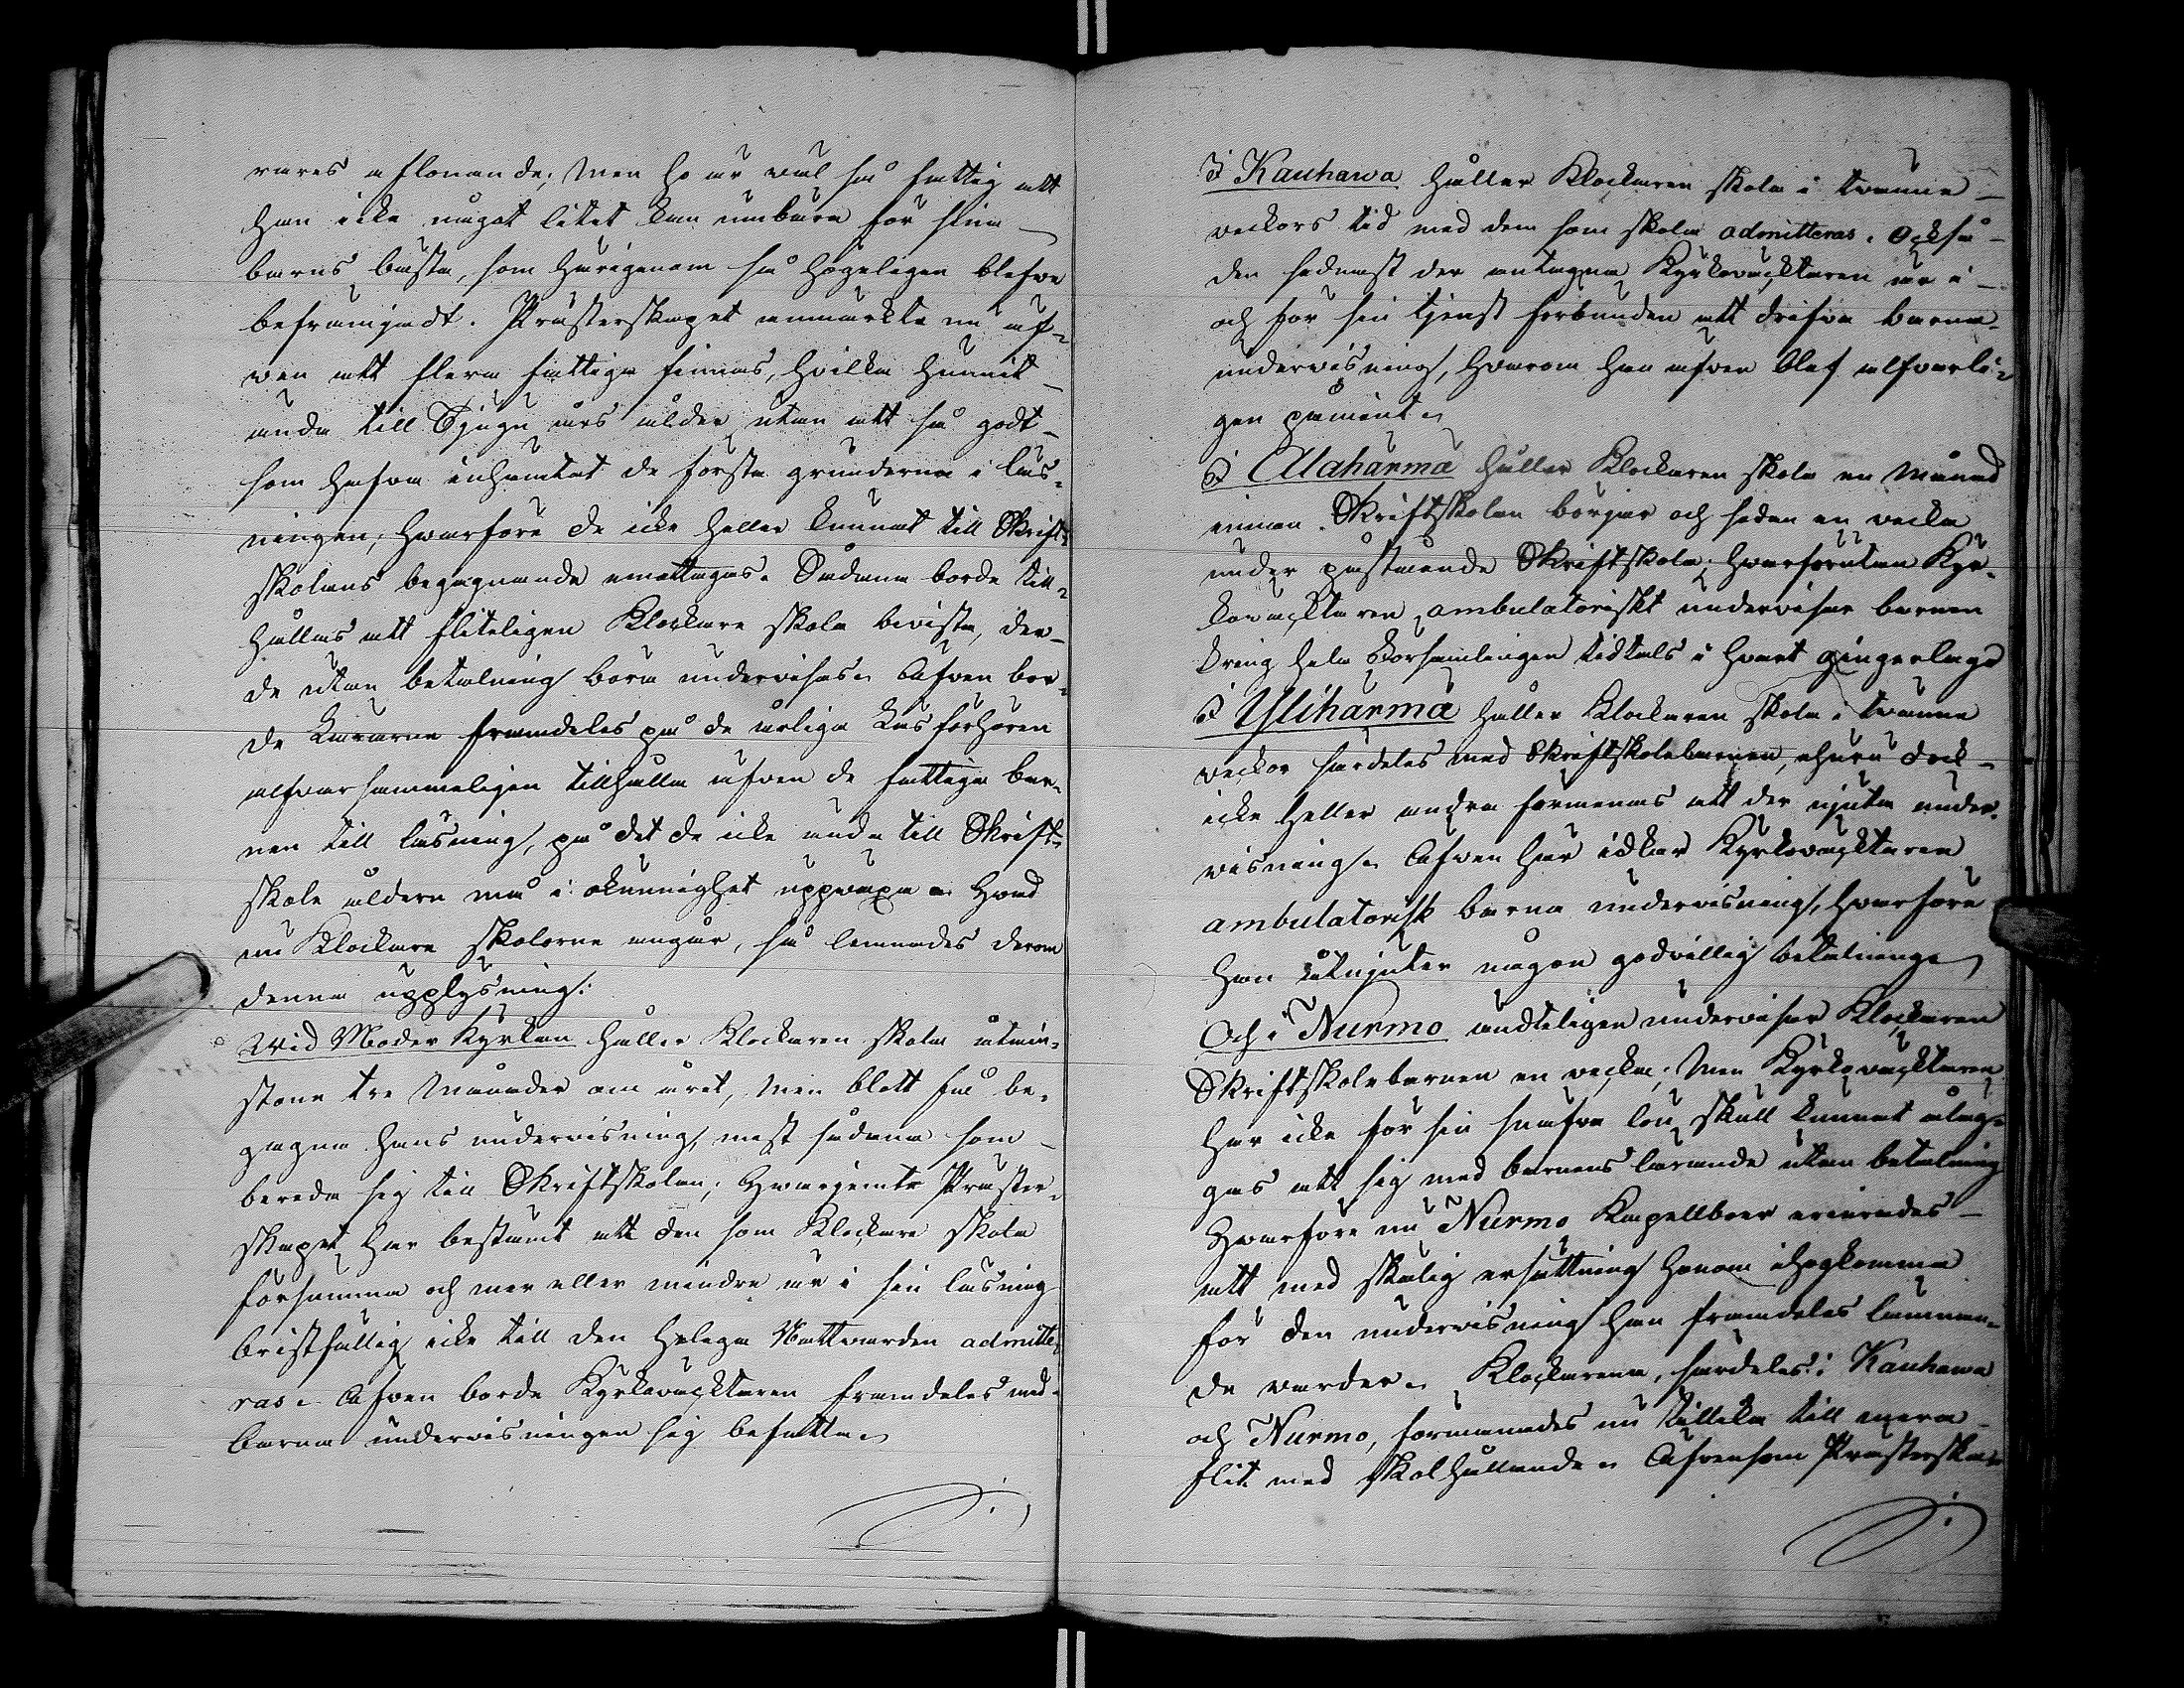 rares aflönande; Men ho är wäl så fattig att
han icke något litet kan umbära för sina
barns bästa, som härigenom så högeligen blefwe
befrämjadt. Prästerskapet anmärkte nu äf¬
wen att flera fattiga finnas, hvilka hunnit
ända till Tjugu års ålder, utan att så godt
som hafwa inhämtat de första grunderna i läs¬
ningen; Hwarföre de icke heller kunnat till Skrift¬
skolans begagnande emottagas. Sådana borde till¬
hållas att fliteligen Klockare skola bivista, der
de utan betalning böra undervisas. Äfven bor¬
de Lärarne framdeles på de årliga Läsförhören
alfvarsammeligen tillhålla äfven de fattiga bar¬
nen till läsning, på det de icke ända till Skrift¬
skole åldern må i okunnighet uppvaxa. Hvad
nu Klockare skolorne angår, så lemnades derom
denna upplysning:
Wid Moder Kyrkan håller Klockaren skola åtmin¬
stone tre Månader om året, Men blott få be¬
gagna hans undervisning, mest sådana som
bereda sig till Skriftskolan; Hwarjemte Präster¬
skapet har bestämt att den som Klockare skola
försumma och mer eller mindre är i sin läsning
bristfällig icke till den Heliga Nattvarden admitte¬
ras. Äfven borde Kyrkovacktaren framdeles med
barna undervisningen sig befatta.
I Kauhawa håller Klockaren skola i tvänne
veckors tid med dem som skola admitteras. Också
den sednast der antagna Kyrkovacktaren är i
och för sin tjenst förbunden att drifva barna
undervisning, Hvarom han äfven blef alfvarli¬
gen påmint.
I Alahärmä håller Klockaren skola en Månad
innan Skriftskolan börjar och sedan en vecka
under påstående Skriftskola; Hvarförutan Kyr¬
kovacktaren ambulatoriskt underviser barnen
kring hela Församlingen tidtals i hvart gingerlag
I Yliharmä håller Klockaren skola i tvänne
veckor särdeles med Skriftskolebarnen, ehuru dock
icke heller andra förmenas att der njuta under¬
visning. Äfven här idkar Kyrkovacktaren
ambulatorisk barna undervisning, Hvarföre
han åtnjuter någon godvillig betalning.
Och i Nurmo ändteligen underviser Klockaren
Skriftskolebarnen en vecka; Men Kyrkovacktaren
har icke för sin snafva lön skull kunnat åläg¬
gas att sig med barnens lärande utan betalning
Hvarföre nu Nurmo Kapellboer erinrades
att med skälig ersättning honom ihogkomma
för den undervisning han framdeles lämnan¬
de varder. Klockarena, särdeles i Kauhawa
och Nurmo, förmanades nu tillika till mera
flit med skolhållande. Äfvensom Prästerska¬